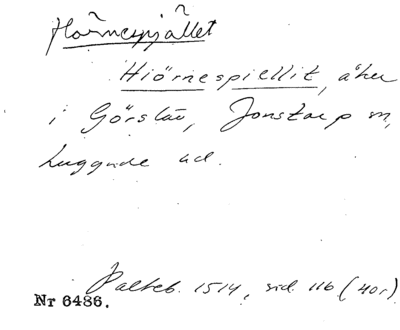 Hörnespjället
Hiörnespiellit, åker
i Görstäv, Jonstorp sn,
Luggude hd.
Palteb. 1514, sid. 116 (40r)
Nr 6486.